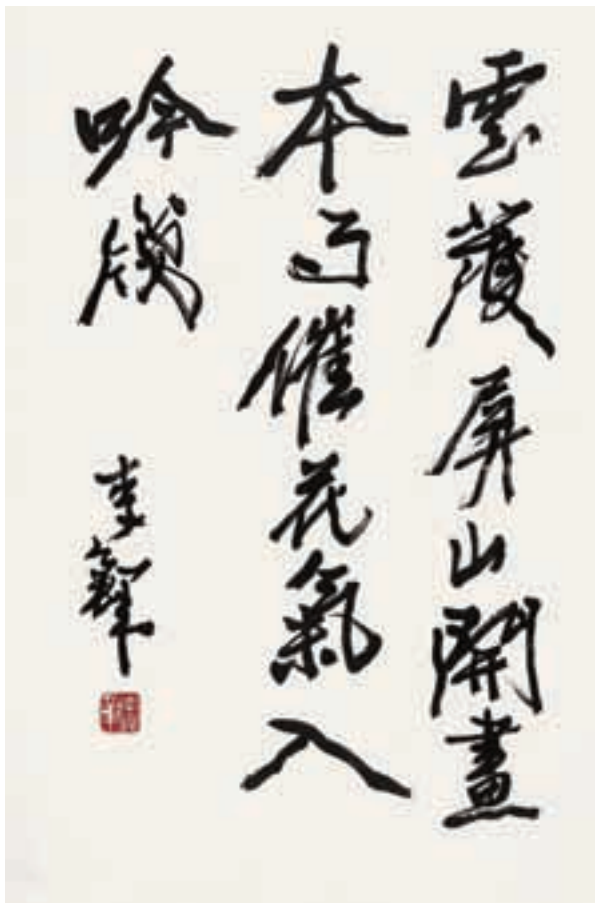 雲護屏山開畫
本催花氣入
吟牋
李鐸